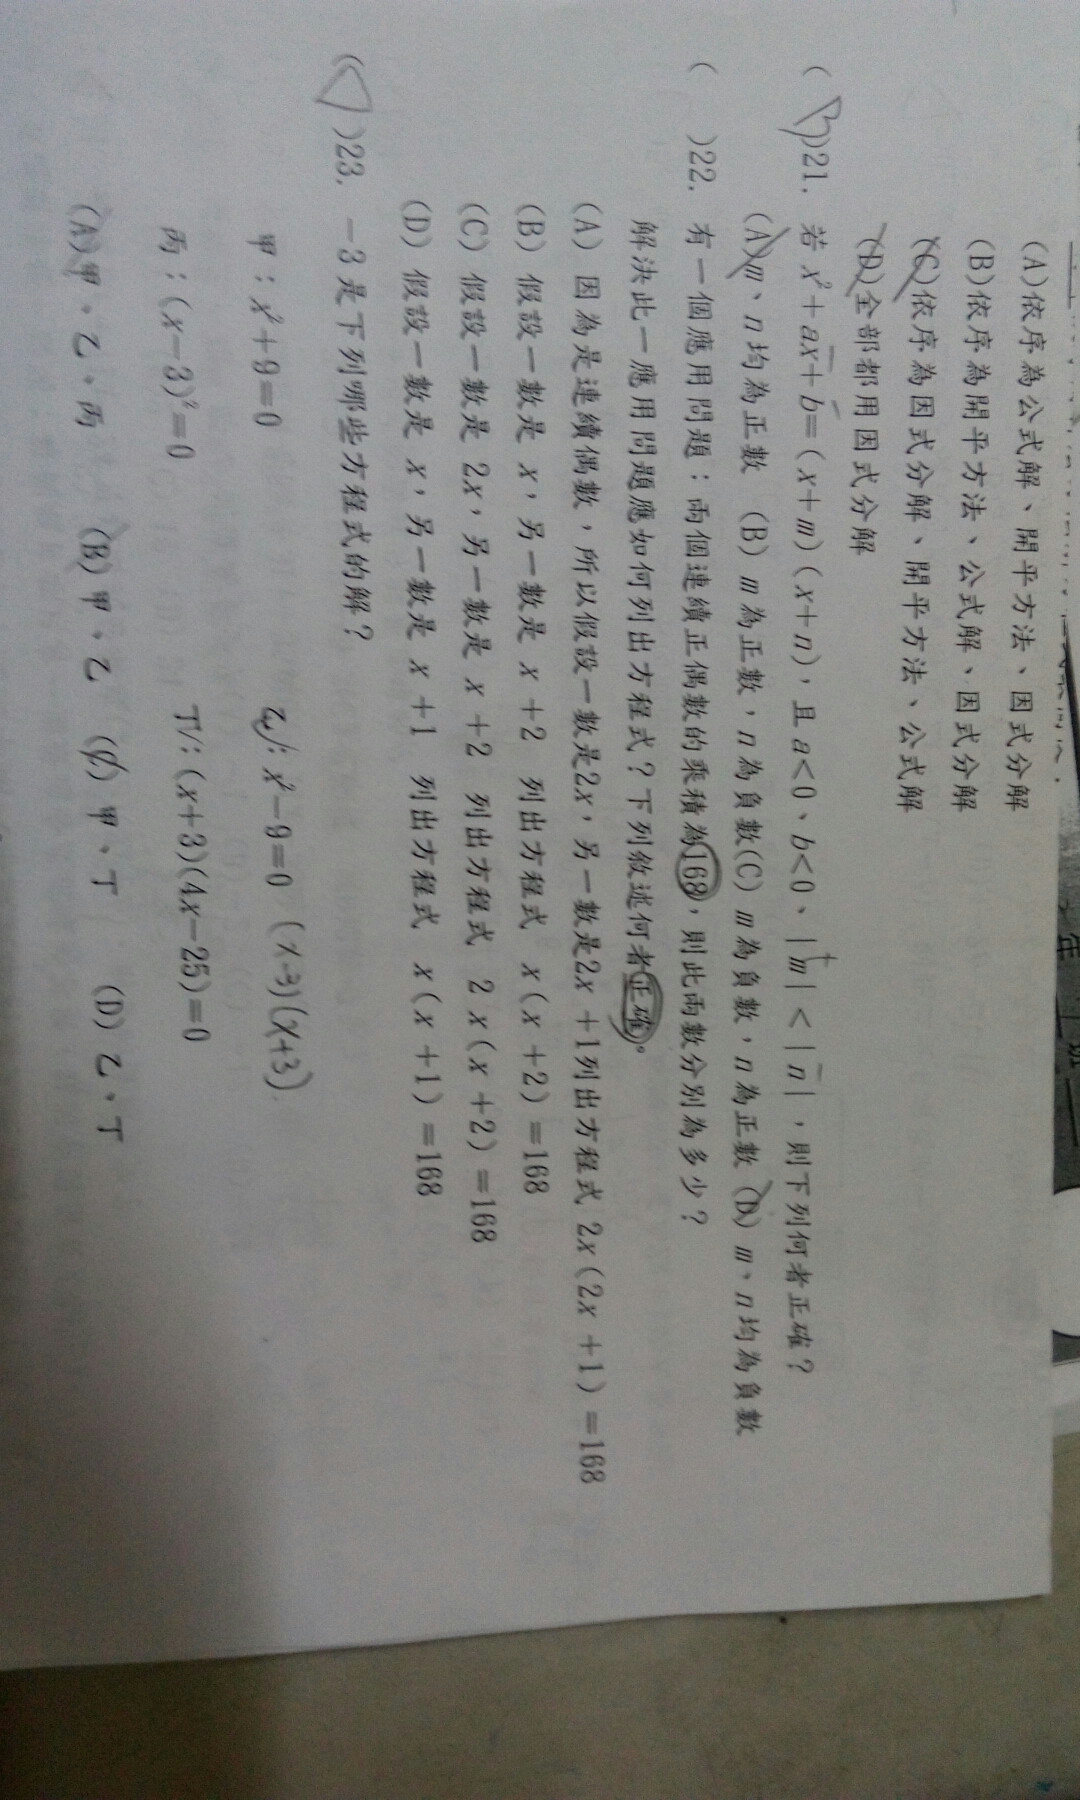 (A)依序為公式解、開平方法、因式分解
(B)依序為開平方法、公式解、因式分解
(C)依序為因式分解、開平方法、公式解
(D)全部都用因式分解
(B)21. 若 x²+ax+b=(x+m)(x+n)，且 a<0、b<0、|m|<|n|，則下列何者正確？
(A)m、n均為正數 (B) m為正數，n為負數(C) m為負數，n為正數 (D) m、n均為負數
( )22. 有一個應用問題：兩個連續正偶數的乘積為168，則此兩數分別為多少？
解決此一應用問題應如何列出方程式？下列敘述何者正確。
(A) 因為是連續偶數，所以假設一數是2x，另一數是2x +1列出方程式 2x(2x +1)=168
(B) 假設一數是 x，另一數是 x +2 列出方程式 x(x +2)=168
(C) 假設一數是 2x，另一數是 x +2 列出方程式 2 x(x +2)=168
(D) 假設一數是 x，另一數是 x +1 列出方程式 x(x +1)=168
(D)23. -3是下列哪些方程式的解？
甲：x²+9=0 乙：x²-9=0 (x-3)(x+3)
丙：(x-3)²=0 丁：(x+3)(4x-25)=0
(A)甲、乙、丙 (B)甲、乙 (C)甲、丁 (D)乙、丁